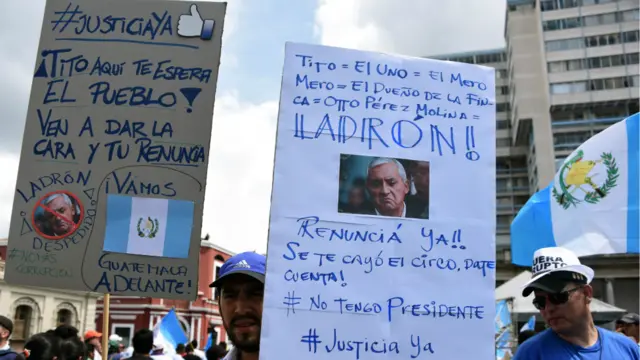 #JUSTICIAYA
¡TITO AQUÍ TE ESPERA
EL PUEBLO!
VEN A DAR LA
CARA Y TU RENUNCIA
LADRÓN
DESPEDIDO
¡VAMOS
GUATEMALA
ADELANTE!
TITO = EL UNO = EL MERO
MERO = EL DUEÑO DE LA FIN-
CA = OTTO PÉREZ MOLINA =
LADRÓN!!
RENUNCIÁ YA!!
SE TE CAYÓ EL CIRCO, DATE
CUENTA!
# NO TENGO PRESIDENTE
#JUSTICIA YA
FUERA